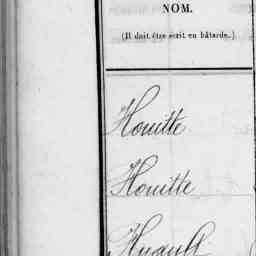 NOM.
(Il doit être écrit en bâtarde.)
Houitte
Houitte